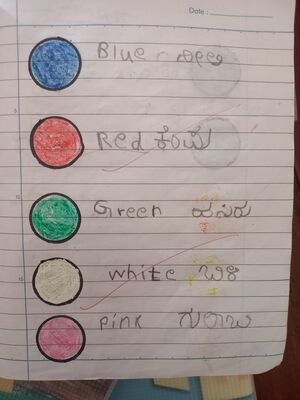 Date :
Blue ನೀಲಿ
Red ಕೆಂಪು
Green ಹಸಿರು
white ಬಿಳಿ
pink ಗುಲಾಬಿ